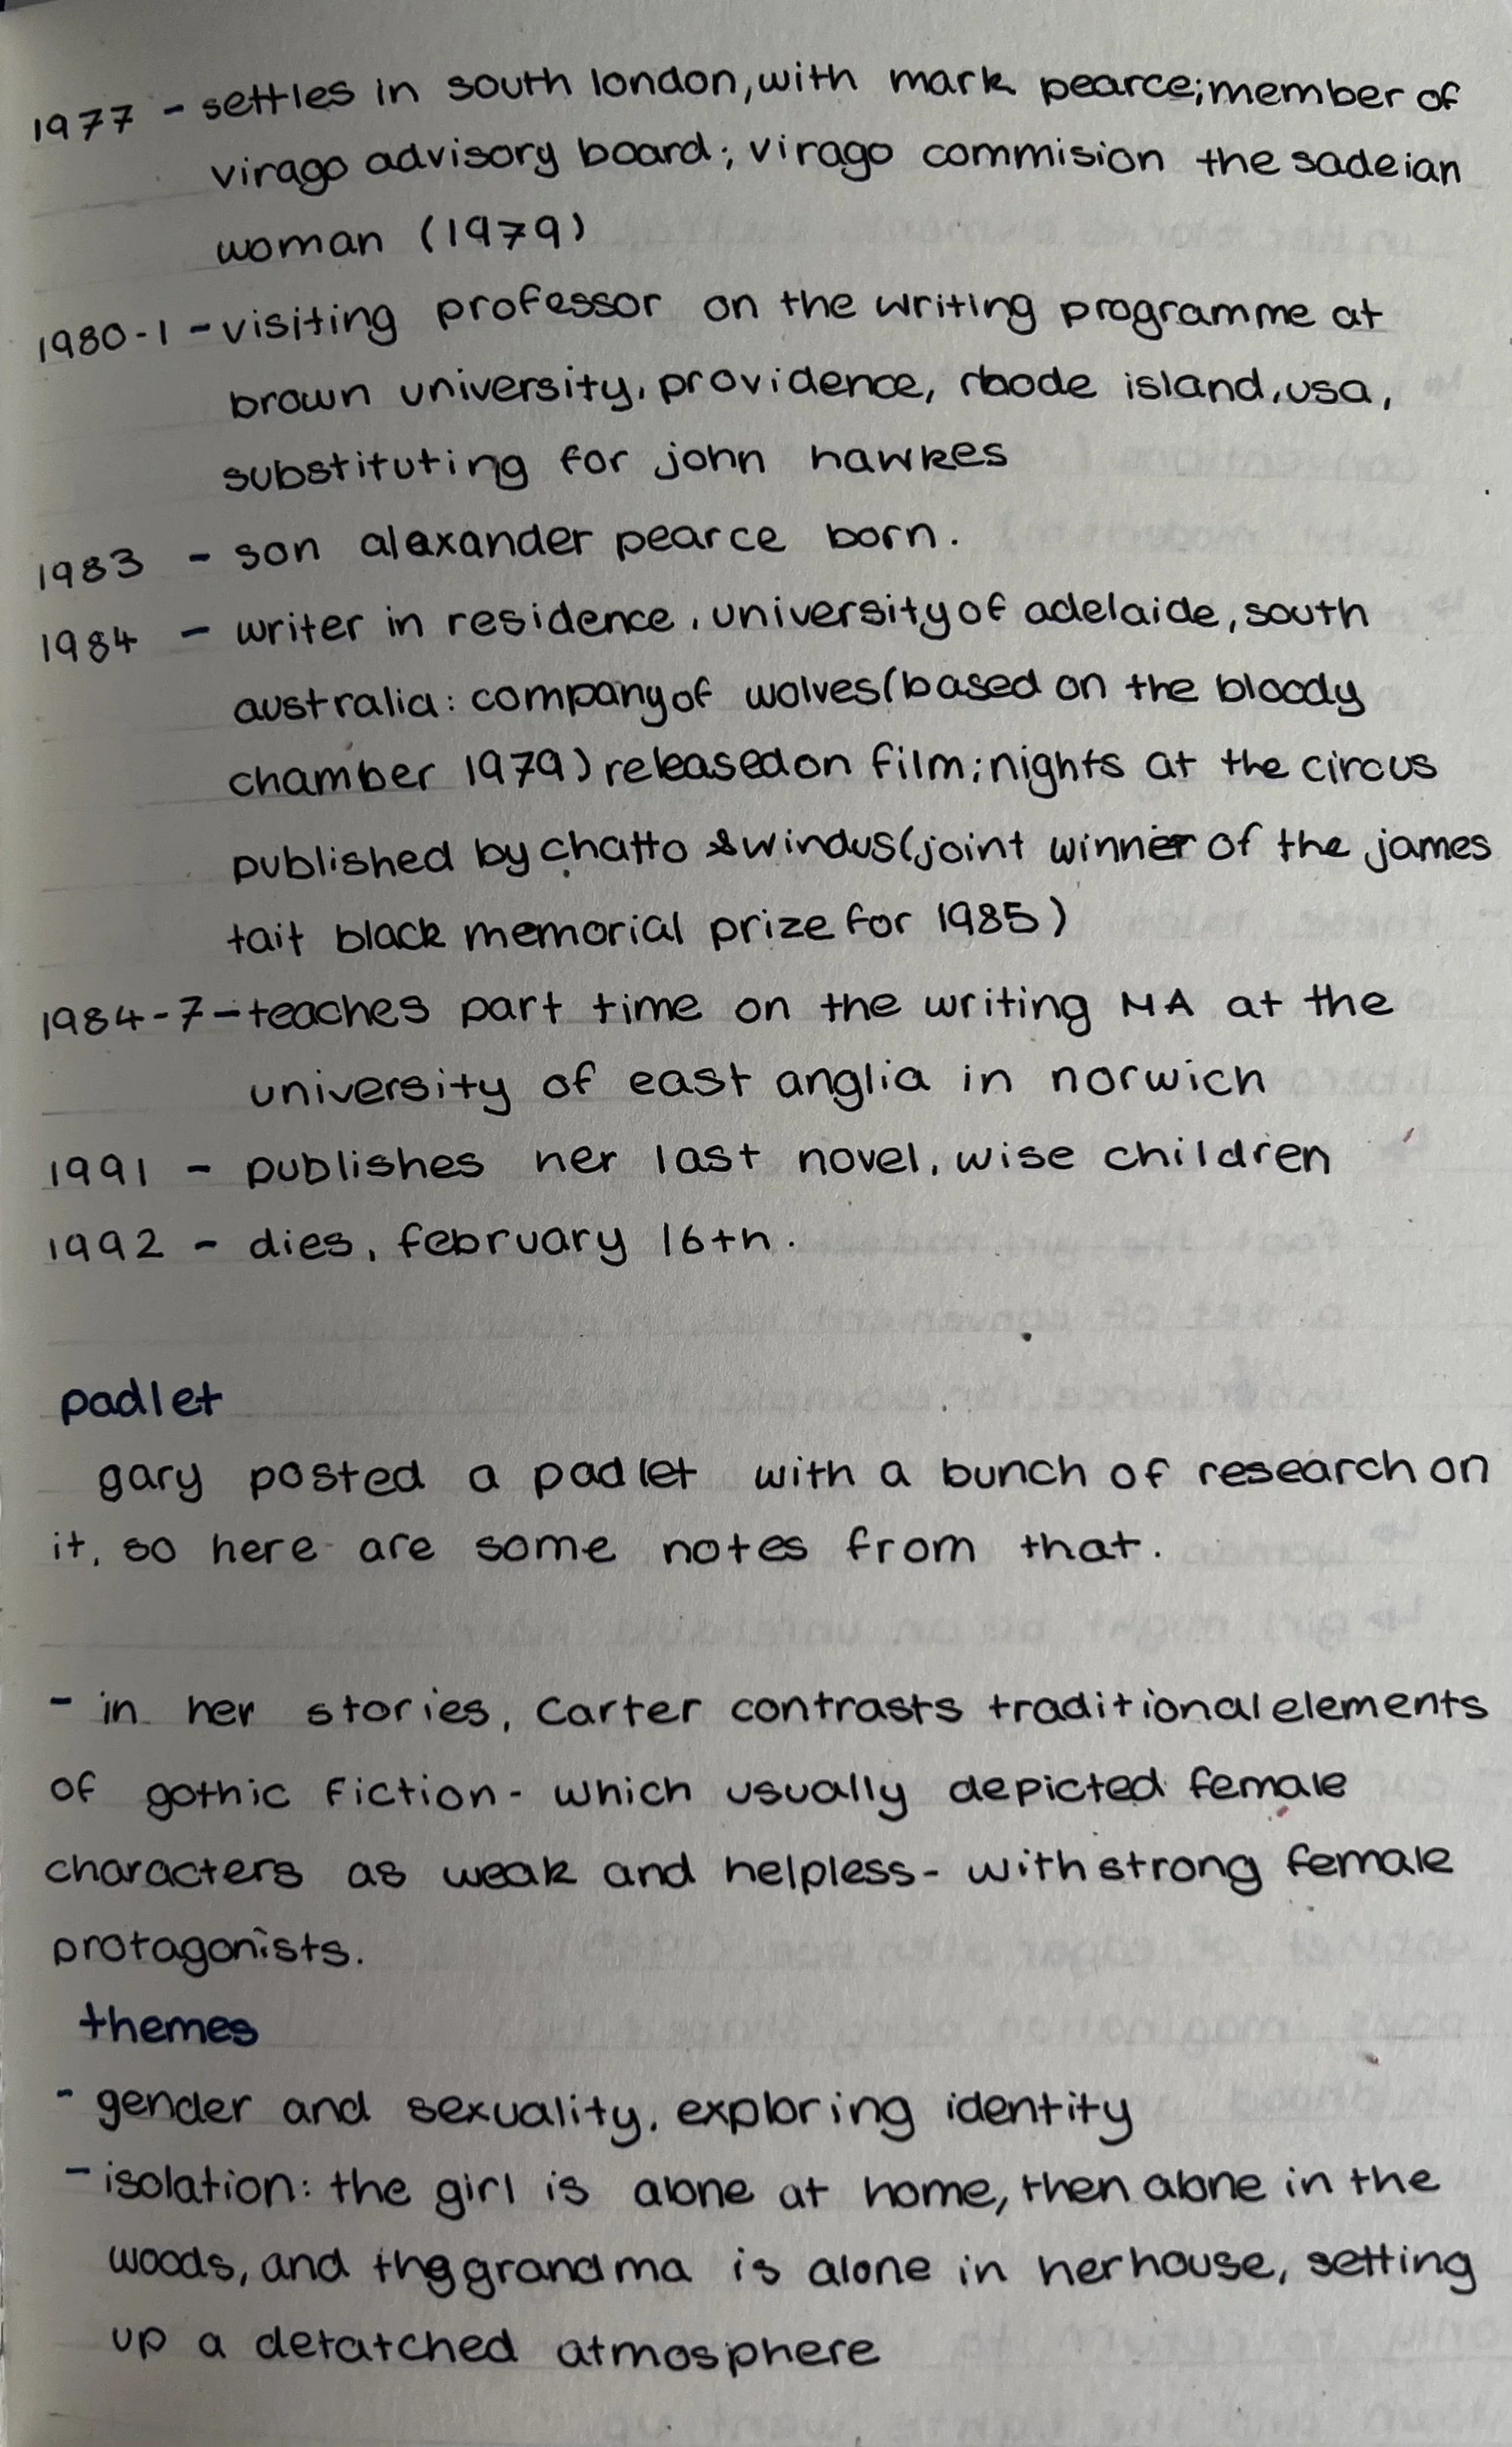 1977 - settles in south london, with mark pearce; member of
virago advisory board; virago commision the sadeian
woman (1979)
1980-1 - visiting professor on the writing programme at
brown university, providence, rhode island, usa,
substituting for john hawkes
1983 - son alexander pearce born.
1984 - writer in residence, university of adelaide, south
australia: company of wolves (based on the bloody
chamber 1979) released on film; nights at the circus
published by chatto & windus (joint winner of the james
tait black memorial prize for 1985)
1984-7 - teaches part time on the writing MA at the
university of east anglia in norwich
1991 - publishes her last novel, wise children
1992 - dies, february 16th.
padlet
gary posted a padlet with a bunch of research on
it, so here are some notes from that.
- in her stories, Carter contrasts traditional elements
of gothic fiction - which usually depicted female
characters as weak and helpless - with strong female
protagonists.
themes
- gender and sexuality, exploring identity
- isolation: the girl is alone at home, then alone in the
woods, and the grandma is alone in her house, setting
up a detatched atmosphere